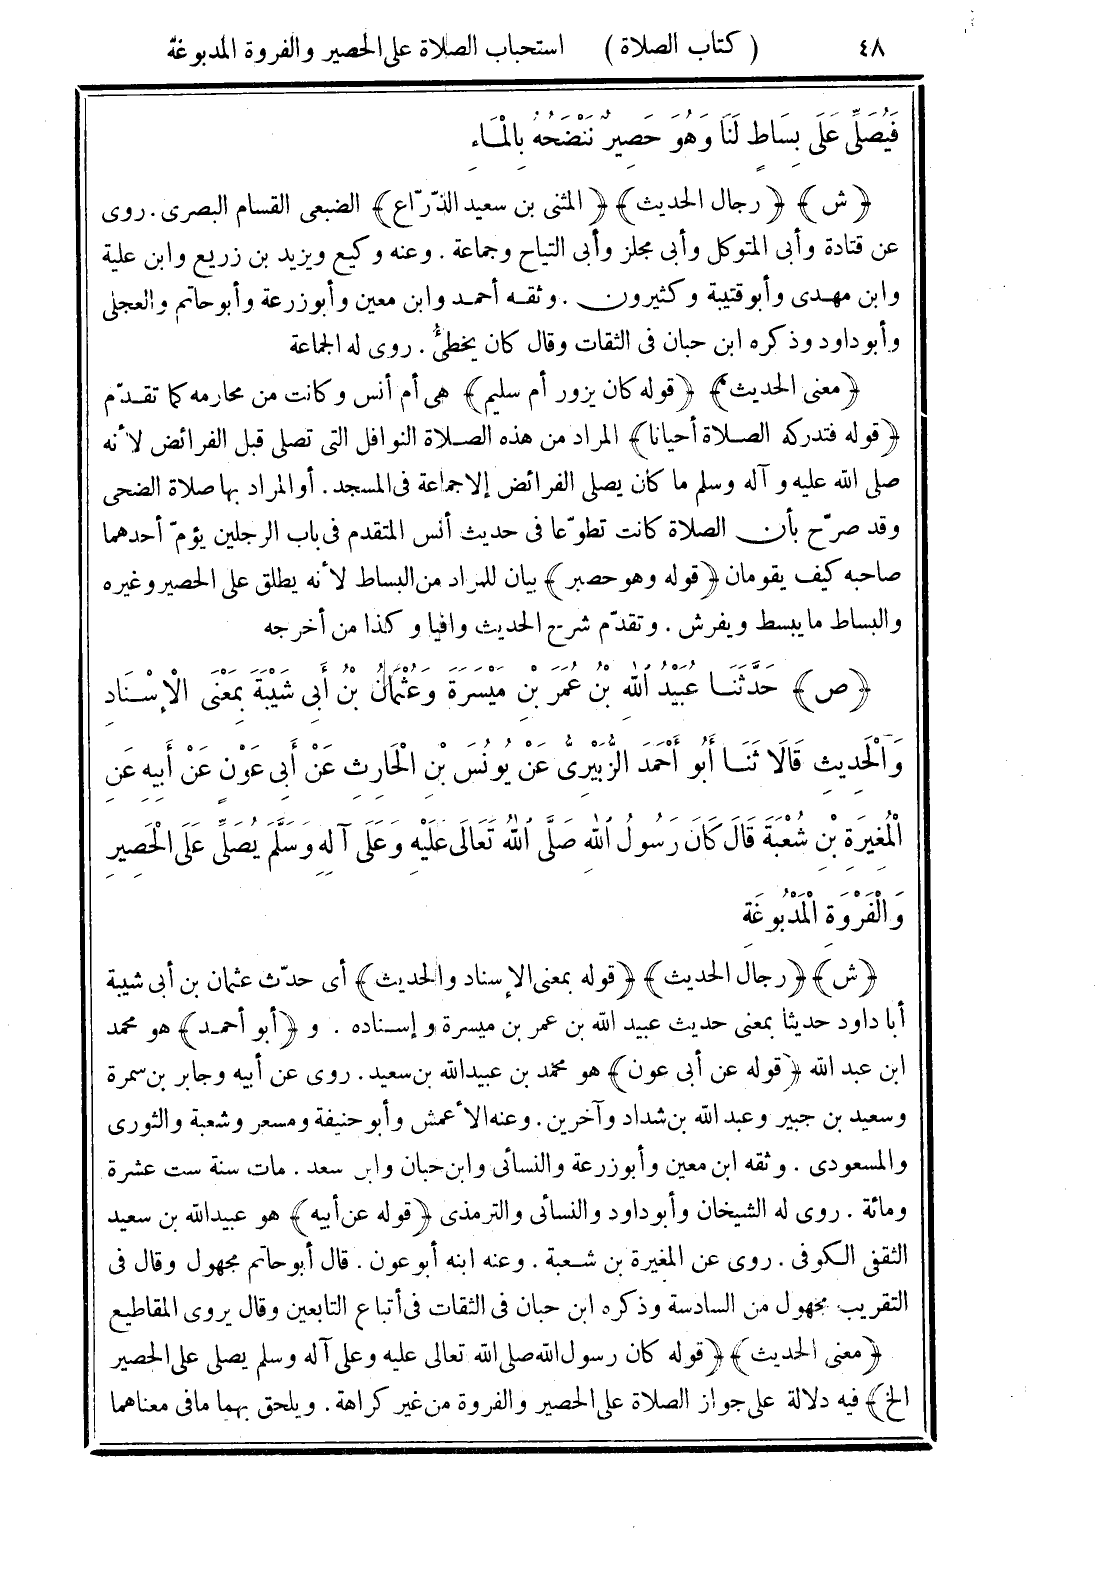 ٤٨ ( كتاب الصلاة ) استحباب الصلاة على الحصير والفروة المدبوغة
فَيُصَلِّى عَلَى بِسَاطٍ لَنَا وَهُوَ حَصِيرٌ نَنْضَحُهُ بِالْمَاءِ
﴿ش﴾ ﴿رجال الحديث﴾ ﴿المثنى بن سعيد الذّرّاع﴾ الضبعى القسام البصرى . روى
عن قتادة وأبى المتوكل وأبى مجلز وأبى التياح وجماعة . وعنه وكيع ويزيد بن زريع وابن علية
وابن مهدى وأبوقتيبة وكثيرون . وثقه أحمد وابن معين وأبوزرعة وأبوحاتم والعجلى
وأبوداود وذكره ابن حبان فى الثقات وقال كان يخطئُ . روى له الجماعة
﴿معنى الحديث﴾ ﴿قوله كان يزور أم سليم﴾ هى أم أنس وكانت من محارمه كما تقدّم
﴿قوله فتدركه الصلاة أحيانا﴾ المراد من هذه الصلاة النوافل التى تصلى قبل الفرائض لأنه
صلى الله عليه وآله وسلم ما كان يصلى الفرائض إلا جماعة فى المسجد . أو المراد بها صلاة الضحى
وقد صرّح بأن الصلاة كانت تطوّعا فى حديث أنس المتقدم فى باب الرجلين يؤمّ أحدهما
صاحبه كيف يقومان ﴿قوله وهو حصير﴾ بيان للمراد من البساط لأنه يطلق على الحصير وغيره
والبساط مايبسط ويفرش . وتقدّم شرح الحديث وافيا وكذا من أخرجه
﴿ص﴾ حَدَّثَنَا عُبَيْدُ اللهِ بْنُ عُمَرَ بْنِ مَيْسَرَةَ وَعُثْمَانُ بْنُ أَبِى شَيْبَةَ بِمَعْنَى الْإِسْنَادِ
وَالْحَدِيثِ قَالَا ثَنَا أَبُو أَحْمَدَ الزُّبَيْرِىُّ عَنْ يُونُسَ بْنِ الْحَارِثِ عَنْ أَبِى عَوْنٍ عَنْ أَبِيهِ عَنِ
الْمُغِيرَةِ بْنِ شُعْبَةَ قَالَ كَانَ رَسُولُ اللهِ صَلَّى اللهُ تَعَالَى عَلَيْهِ وَعَلَى آلِهِ وَسَلَّمَ يُصَلِّى عَلَى الْحَصِيرِ
وَالْفَرْوَةِ الْمَدْبُوغَةِ
﴿ش﴾ ﴿رجال الحديث﴾ ﴿قوله بمعنى الإسناد والحديث﴾ أى حدّث عثمان بن أبى شيبة
أباداود حديثا بمعنى حديث عبيد الله بن عمر بن ميسرة وإسناده . و ﴿أبو أحمد﴾ هو محمد
ابن عبد الله ﴿قوله عن أبى عون﴾ هو محمد بن عبيدالله بن سعيد . روى عن أبيه وجابر بن سمرة
وسعيد بن جبير وعبد الله بن شداد وآخرين . وعنه الأعمش وأبوحنيفة ومسعر وشعبة والثورى
والمسعودى . وثقه ابن معين وأبوزرعة والنسائى وابن حبان وابن سعد . مات سنة ست عشرة
ومائة . روى له الشيخان وأبوداود والنسائى والترمذى ﴿قوله عن أبيه﴾ هو عبيدالله بن سعيد
الثقفى الكوفى . روى عن المغيرة بن شعبة . وعنه ابنه أبوعون . قال أبوحاتم مجهول وقال فى
التقريب مجهول من السادسة وذكره ابن حبان فى الثقات فى أتباع التابعين وقال يروى المقاطيع
﴿معنى الحديث﴾ ﴿قوله كان رسول الله صلى الله تعالى عليه وعلى آله وسلم يصلى على الحصير
الخ﴾ فيه دلالة على جواز الصلاة على الحصير والفروة من غير كراهة . ويلحق بهما مافى معناهما